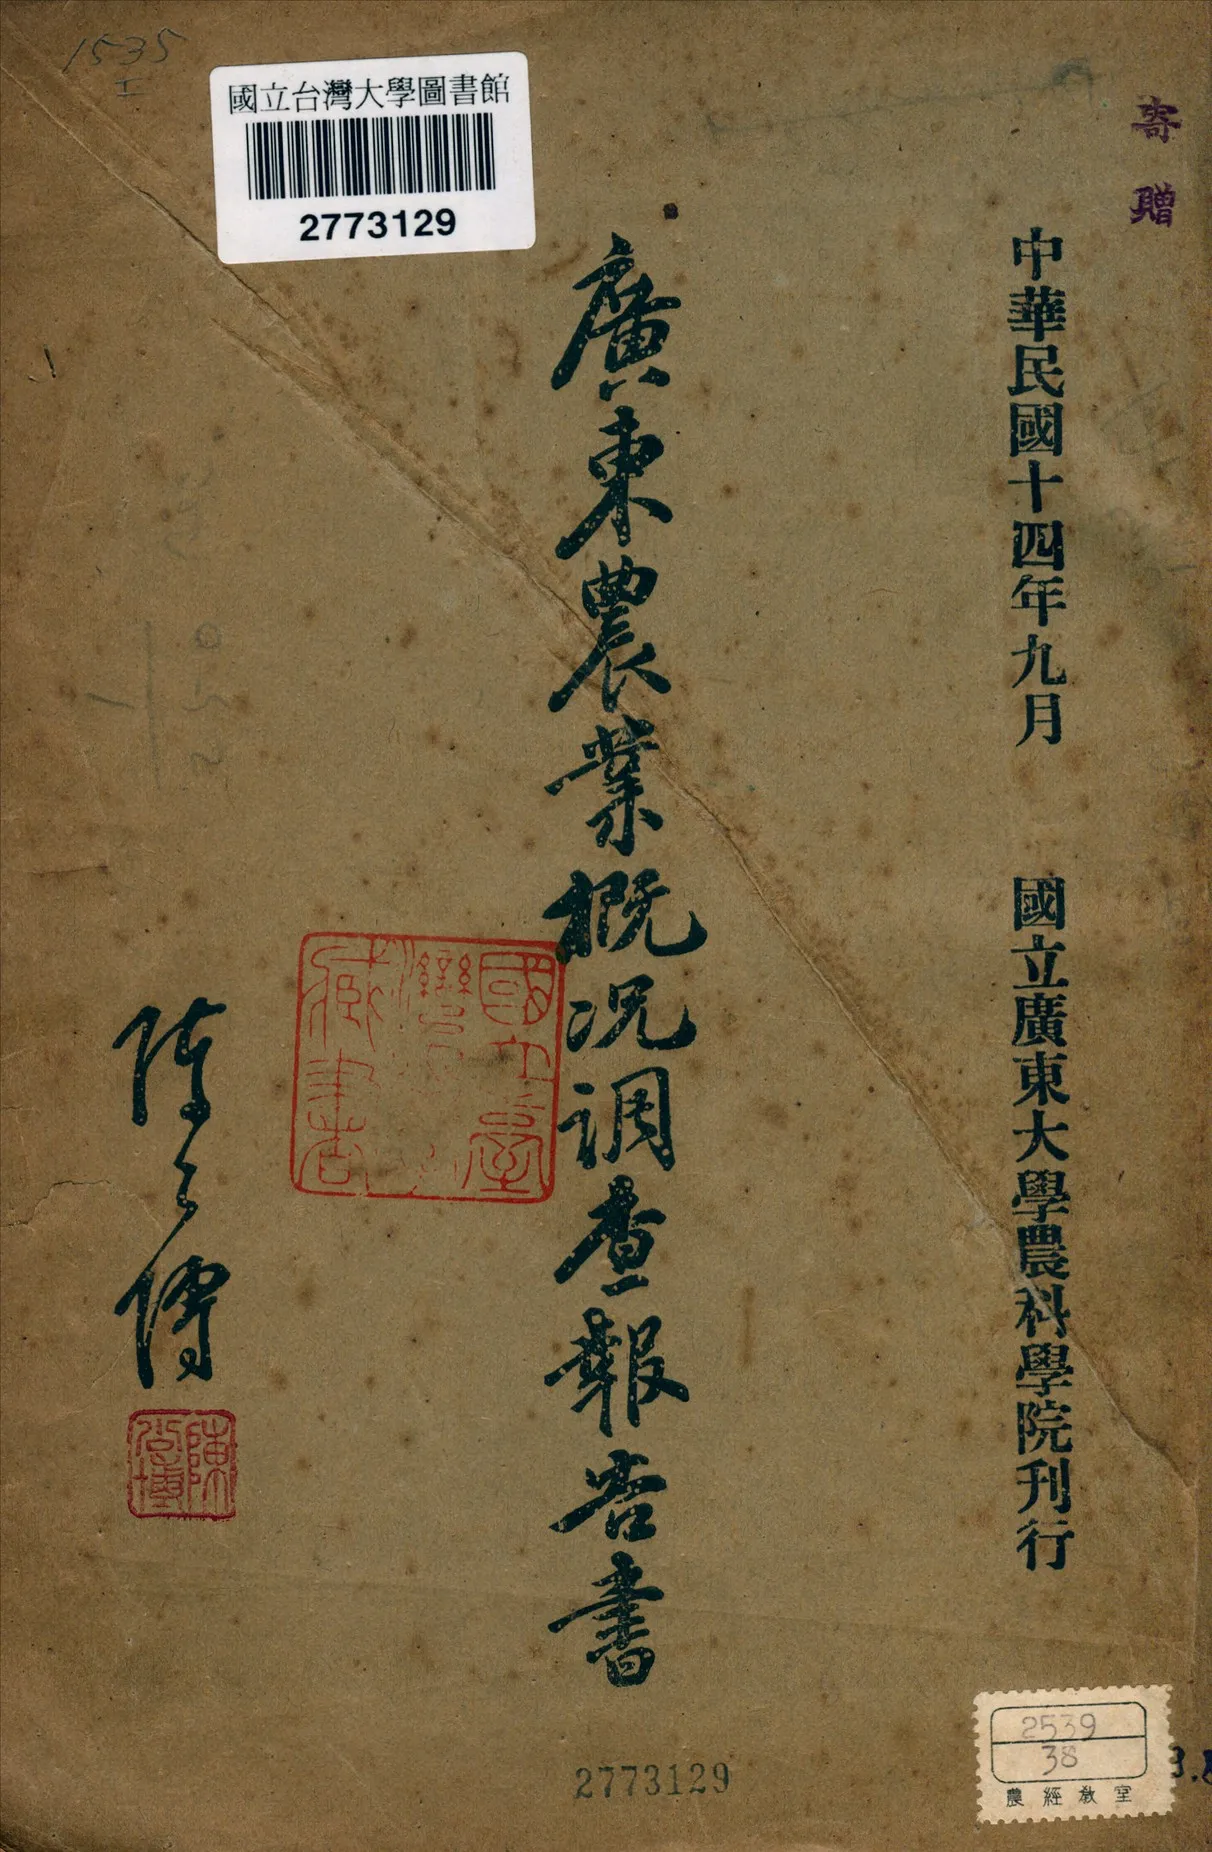 1535
工
國立台灣大學圖書館
2773129
寄贈
中華民國十四年九月 國立廣東大學農科學院刊行
廣東農業概况調查報告書
國立臺灣大學藏書
陳公博
陳公博
2539
38
農經教室
2773129